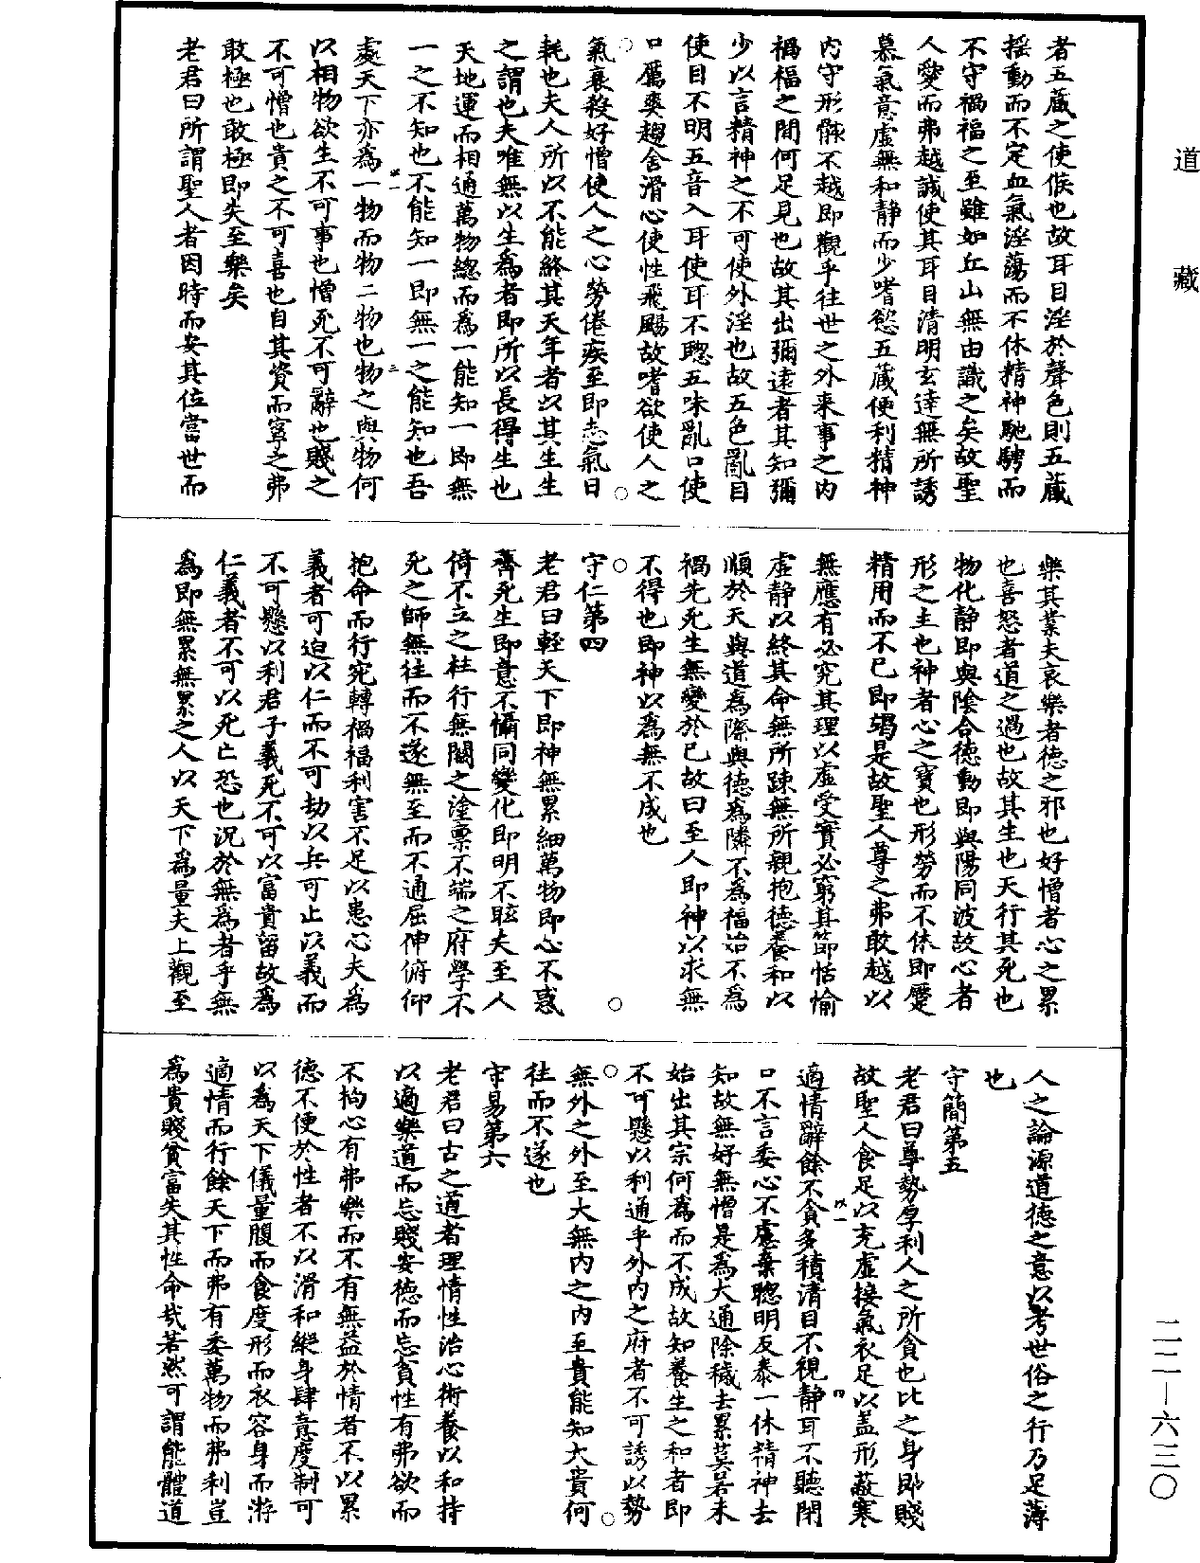 道藏
者五藏之使候也故耳目淫於聲色則五藏
揺動而不定血氣淫蕩而不休精神馳騁而
不守禍福之至雖如丘山無由識之矣故聖
人愛而弗越誠使其耳目清明玄達無所誘
慕氣意虛無和靜而少嗜慾五藏便利精神
内守形骸不越即觀乎往世之外来事之内
禍福之間何足見也故其出彌遠者其知彌
少以言精神之不可使外淫也故五色亂目
使目不明五音入耳使耳不聰五味亂口使
口厲爽趨舍滑心使性飛颺故嗜欲使人之
氣衰殺好憎使人之心勞倦疾至即志氣日
耗也夫人所以不能終其天年者以其生生
之謂也夫唯無以生為者即所以長得生也
天地運而相通萬物總而為一能知一即無
一之不知也不能知一即無一之能知也吾
處天下亦為一物而物二物也物之與物何
以相物欲生不可事也憎死不可辭也賤之
不可憎也貴之不可喜也自其資而寧之弗
敢極也敢極即失至樂矣
老君曰所謂聖人者因時而安其位當世而
樂其業夫哀樂者德之邪也好憎者心之累
也喜怒者道之過也故其生也天行其死也
物化靜即與陰合德動即與陽同波故心者
形之主也神者心之寶也形勞而不休即蹷
精用而不已即竭是故聖人尊之弗敢越以
無應有必究其理以虛受實必窮其節恬愉
虛靜以終其命無所踈無所親抱德養和以
順於天與道為際與德為隣不為福始不為
禍先死生無變於已故曰至人即神以求無
不得也即神以為無不成也
守仁第四
老君曰輕天下即神無累細萬物即心不惑
齊死生即意不懾同變化即明不眩夫至人
倚不立之柱行無關之塗稟不端之府學不
死之師無往而不遂無至而不通屈伸俯仰
抱命而行宛轉禍福利害不足以患心夫為
義者可迫以仁而不可劫以兵可止以義而
不可懸以利君子義死不可以富貴留故為
仁義者不可以死亡恐也況於無為者乎無
為即無累無累之人以天下為量夫上觀至
人之論源道德之意以考世俗之行乃足薄
也
守簡第五
老君曰尊勢厚利人之所貪也比之身即賤
故聖人食足以充虛接氣衣足以盖形蔽寒
適情辭餘不貪多積清目不視靜耳不聽閉
口不言委心不慮棄聰明反泰一休精神去
知故無好無憎是為大通除穢去累莫若未
始出其宗何為而不成故知養生之和者即
不可懸以利通乎外内之府者不可誘以勢
無外之外至大無内之内至貴能知大貴何
往而不遂也
守易第六
老君曰古之道者理情性治心術養以和持
以適樂道而忘賤安德而忘貧性有弗欲而
不拘心有弗樂而不有無益於情者不以累
德不便於性者不以滑和縱身肆意度制可
以為天下儀量腹而食度形而衣容身而游
適情而行餘天下而弗有委萬物而弗利豈
為貴賤貧富失其性命㢤若然可謂能體道
二二－六三〇